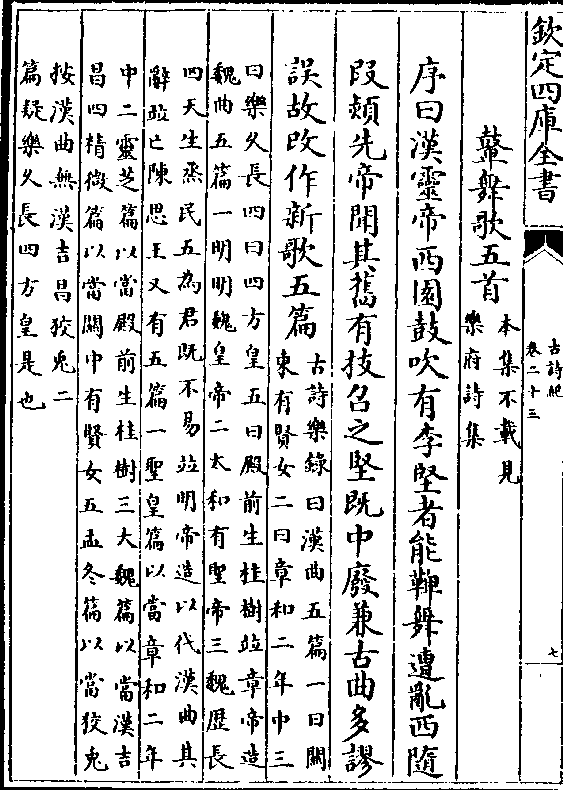 欽定四庫全書
古詩紀
卷二十三
七
鼙舞歌五首
本集不載見
樂府詩集
序曰漢靈帝西園鼓吹有李堅者能鞞舞遭亂西隨
段熲先帝聞其舊有技召之堅既中廢兼古曲多謬
誤故改作新歌五篇
古詩樂錄曰漢曲五篇一曰關
東有賢女二曰章和二年中三
曰樂久長四曰四方皇五曰殿前生桂樹竝章帝造
魏曲五篇一明明魏皇帝二太和有聖帝三魏歴長
四天生烝民五為君既不易竝明帝造以代漢曲其
辭竝亡陳思王又有五篇一聖皇篇以當章和二年
中二靈芝篇以當殿前生桂樹三大魏篇以當漢吉
昌四精微篇以當關中有賢女五孟冬篇以當狡兎
按漢曲無漢吉昌狡兎二
篇疑樂久長四方皇是也